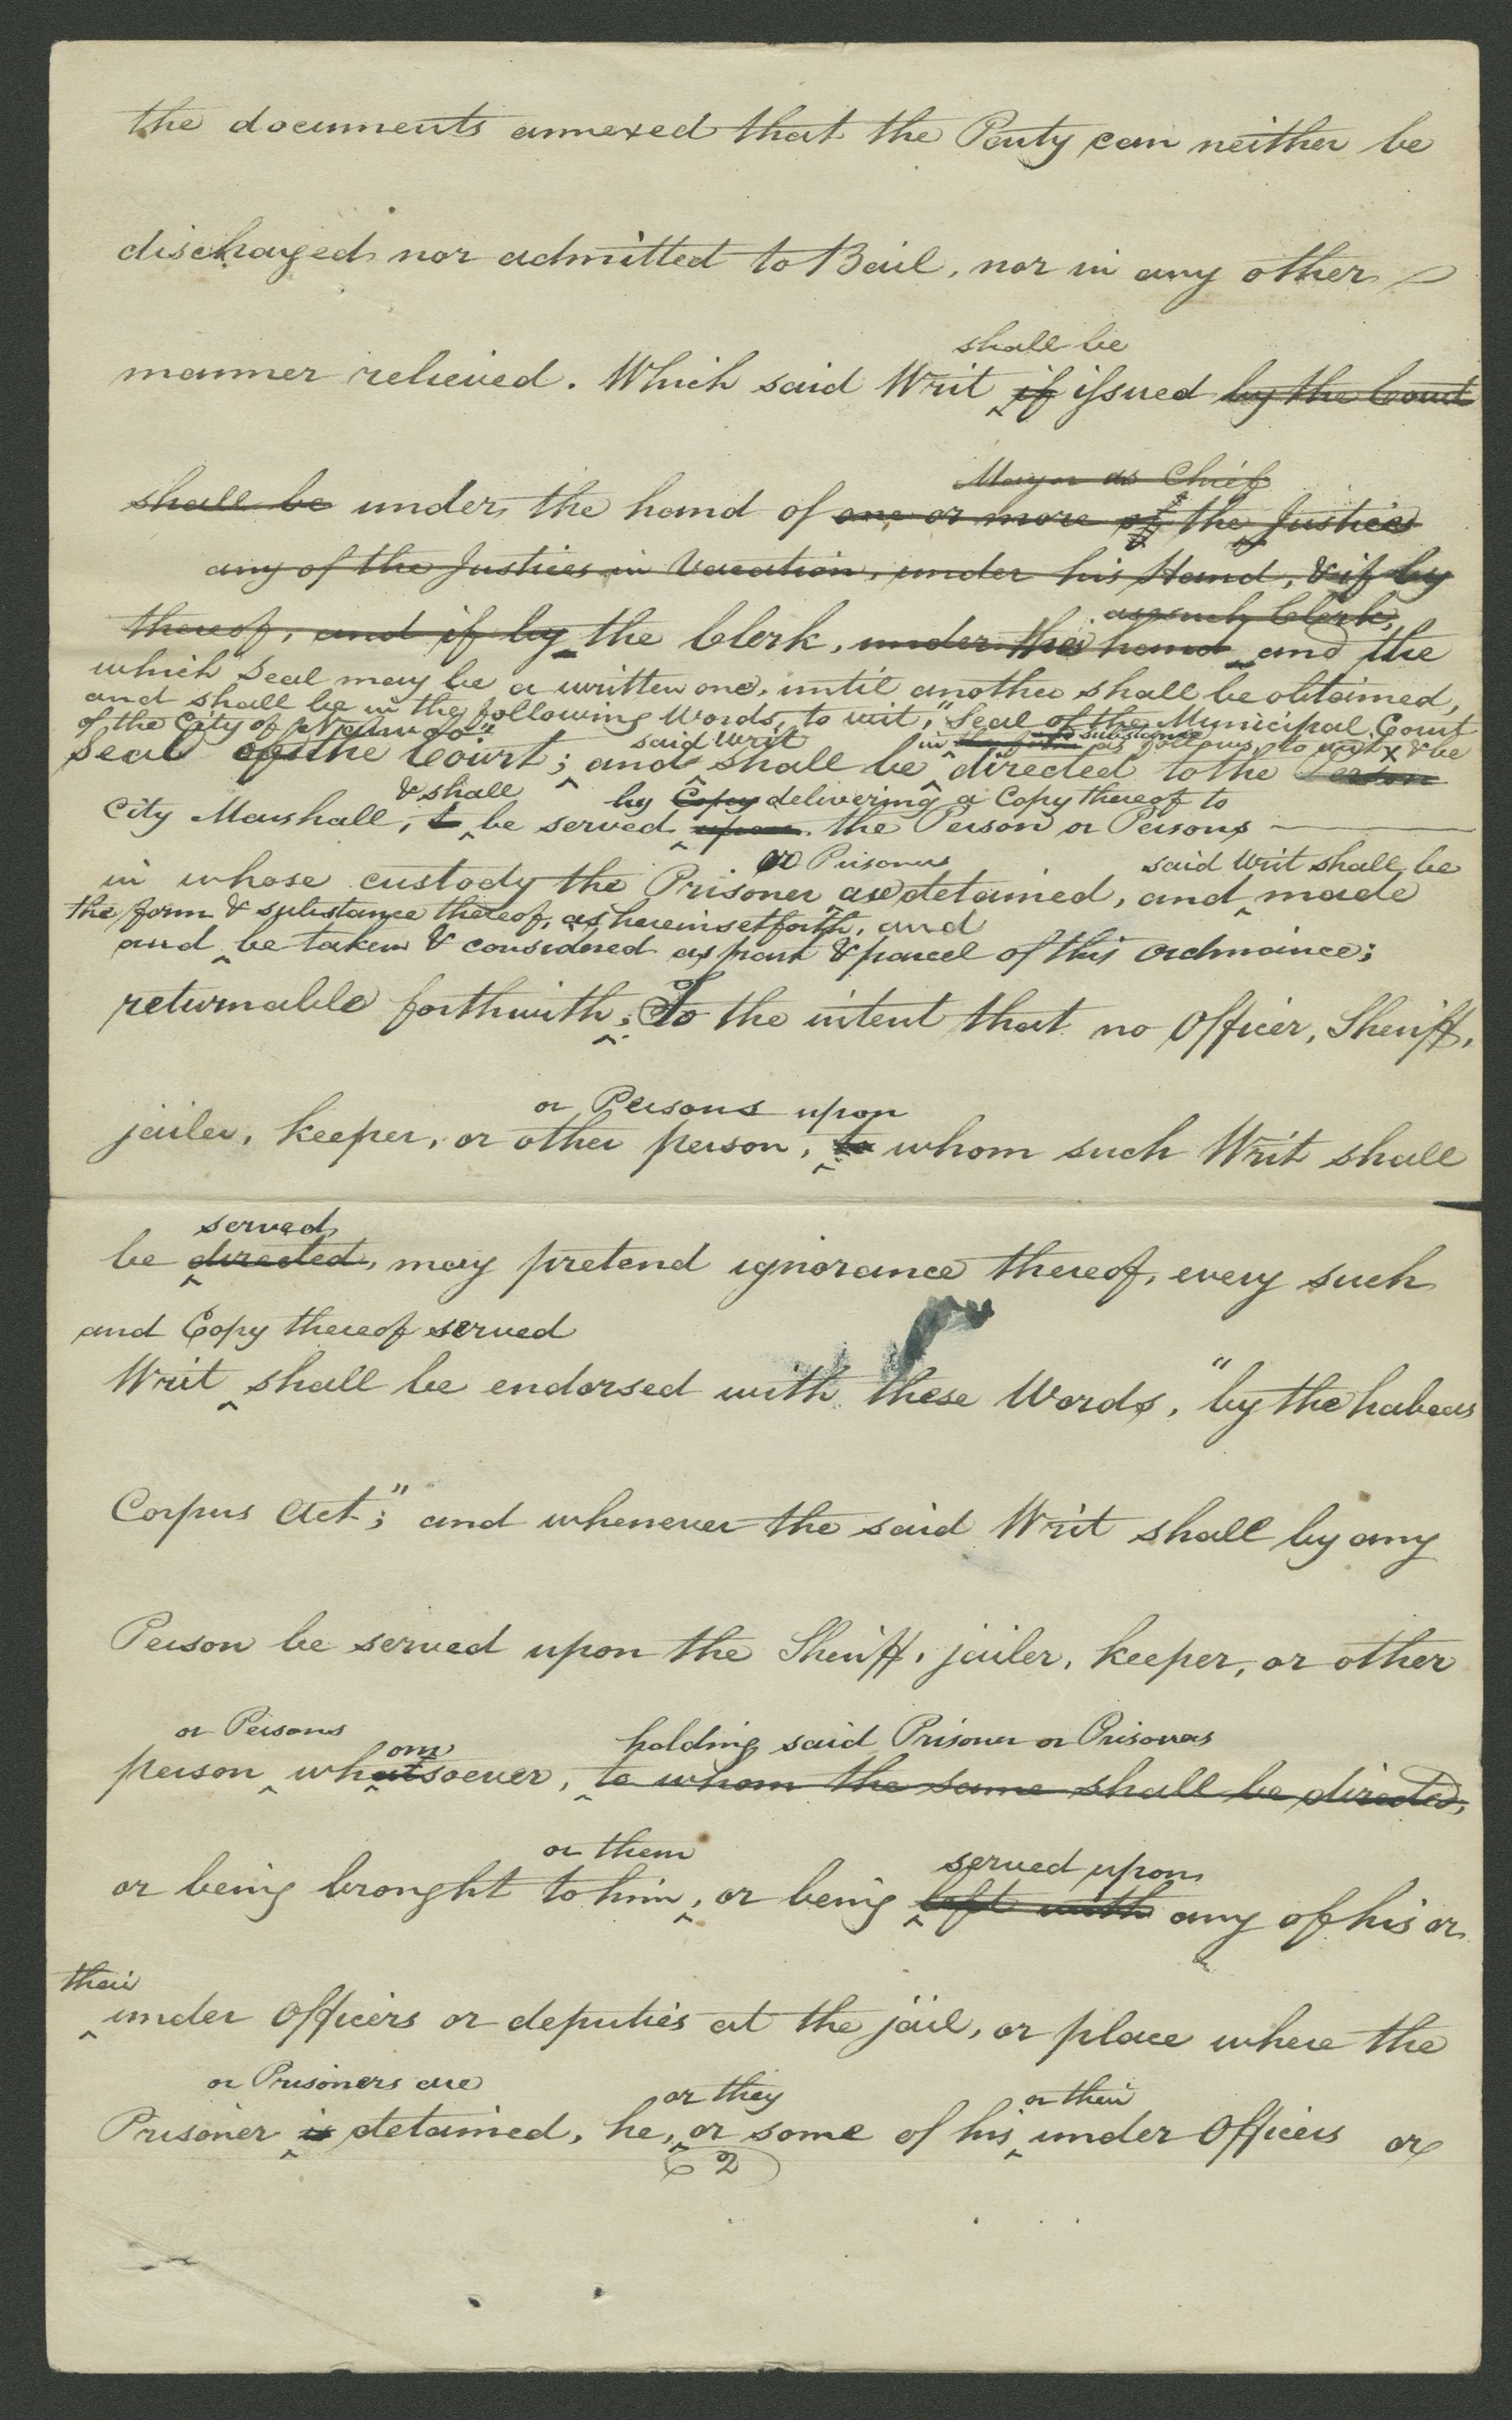 the documents annexed that the Party can neither be
discharged nor admitted to Bail, nor in any other
shall be
manner relieved. Which said Writ if issued by the Court
Mayor as Chief
shall be under the hand of one or more of the Justices
any of the Justices in Vacation, under his Hand, & if by
as such Clerk,
thereof, and if by the Clerk, under his hand and the
which Seal may be a written one, until another shall be obtained,
and shall be in the following Words, to wit, "Seal of the Municipal Court
of the City of Nauvoo"
said writ in substance as follows, to wit X & be
Seal of the Court; and shall be directed to the Person
& shall by Copy delivering a Copy thereof to
City Marshall, be served upon the Person or Persons
or Prisoners said Writ shall be
in whose custody the Prisoner are detained, and made
the form & substance thereof, as herein set forth, and
and be taken & considered as part & parcel of this ordinance;
returnable forthwith; To the intent that no Officer, Sheriff,
or Persons upon
jailer, keeper, or other person, to whom such Writ shall
served
be directed, may pretend ignorance thereof, every such
and Copy thereof served
Writ shall be endorsed with these Words, "by the habeas
Corpus Act;" and whenever the said Writ shall by any
Person be served upon the Sheriff, jailer, keeper, or other
or Persons om holding said Prisoner or Prisoners
person whatsoever, to whom the same shall be directed,
or them served upon
or being brought to him, or being left with any of his or
their
under Officers or deputies at the jail, or place where the
or Prisoners are or they or their
Prisoner is detained, he, or some of his under Officers or
2